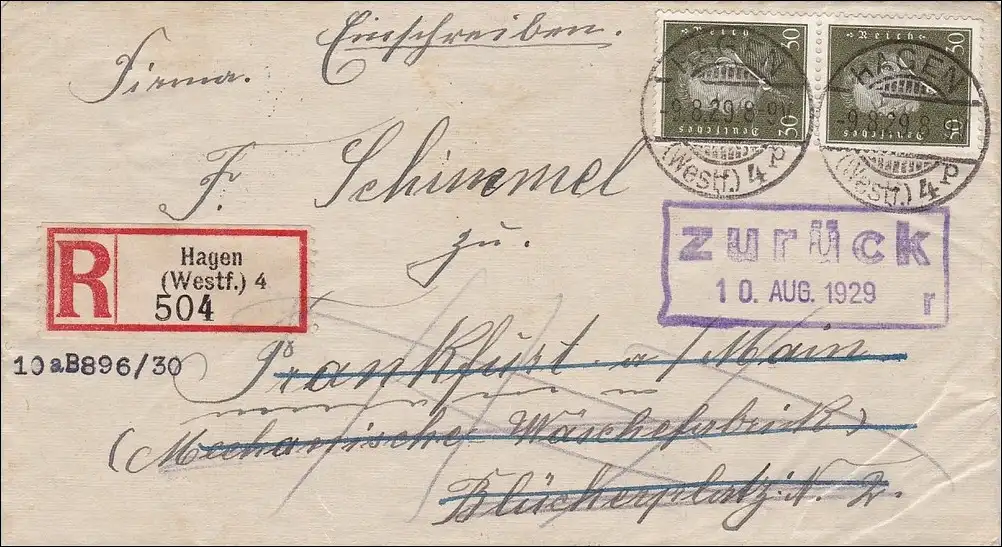 Einschreiben.
Firma.
F. Schimmel
zu.
Frankfurt a/Main
(Mechanische Wäschefabrik)
Blücherplatz. N. 2.
R
Hagen
(Westf.) 4
504
10aB896/30
zurück
10. AUG. 1929
r
30 Deutsches Reich 30
30 Deutsches Reich 30
HAGEN
-9.8.29.8-9V
(Westf.) 4 p
HAGEN
-9.8.29.8
(Westf.) 4 p